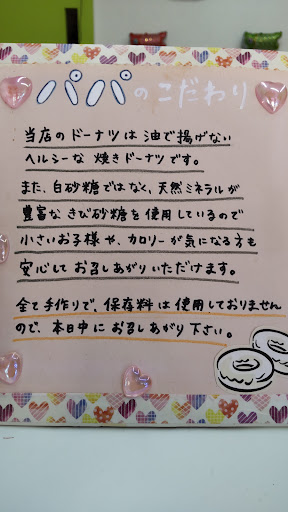 パパのこだわり
当店のドーナツは油で揚げない
ヘルシーな焼きドーナツです。
また、白砂糖ではなく、天然ミネラルが
豊富なきび砂糖を使用しているので
小さいお子様や、カロリーが気になる方も
安心してお召しあがりいただけます。
全て手作りで、保存料は使用しておりません
ので、本日中にお召しあがり下さい。